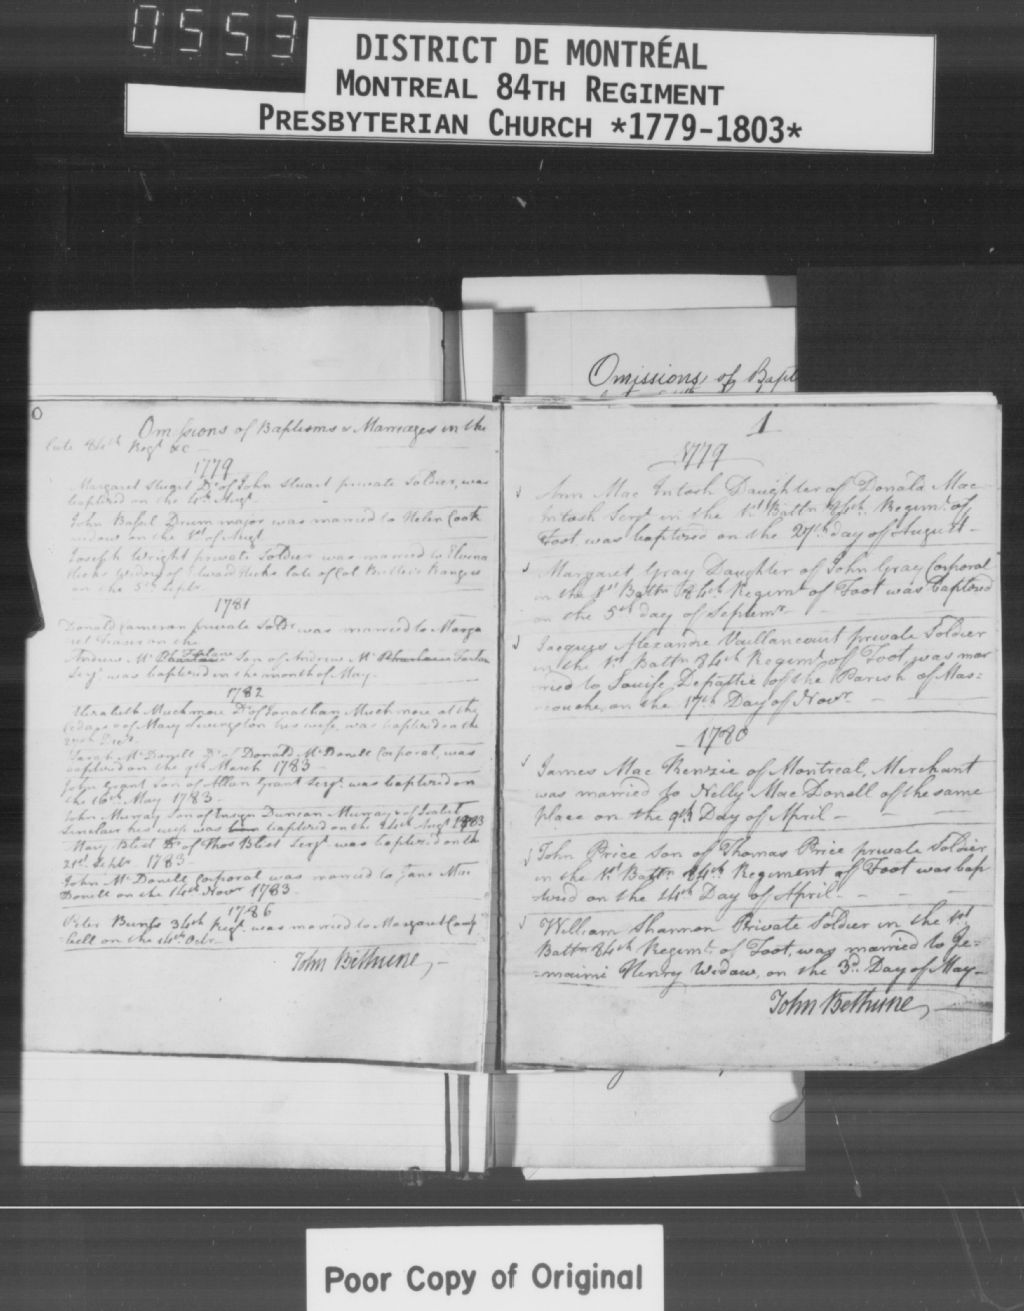 0553
DISTRICT DE MONTRÉAL
MONTREAL 84TH REGIMENT
PRESBYTERIAN CHURCH *1779-1803*
Omissions of Bapt
0
Omissions of Baptisms & Marriages in the
late 84th Regt &c
1779
Margaret Stuart Dr of John Stuart private Soldier, was
baptised on the 4th Augt
John Drum major was married to Helen Cook
widow on the 1st of Augt
Joseph Wright private Soldier was married to
Hicks Widow of Edward Hicks late of Col Butler's Rangers
on the 5th Septr
1781
Donald Cameron private Soldr was married to Marga
ret Fraser on the
Andrew Mc Farlane Son of Andrew Mc Farlan
Serjt was baptised in the month of May
1782
Elizabeth Muchmore Dr of Jonathan Muchmore at the
Cedars & of Mary Livingston his wife, was baptised on the
Decr
Sarah McDonell Dr of Donald McDonell Corporal, was
baptised on the 9th March 1783
John Grant Son of Allan Grant Serjt was baptised on
the 16th May 1783
John Murray Son of Ensign Duncan Murray & of
Sinclair his wife was baptised on the 24th Augt 1783
Mary Blest Dr of Thos Blest Serjt was baptised on the
21st Septr 1783
John McDonell Corporal was married to Jane Mac
Donell on the 14th Novr 1783
1786
Peter Burns 34th Regt was married to Margaret Camp
bell on the Octr
John Bethune
1
1779
Ann Mac Intosh Daughter of Donald Mac
Intosh Serjt in the 1st Battn 84th Regimt of
Foot was baptised on the 27th day of August
Margaret Gray Daughter of John Gray Corporal
in the 1st Battn 84th Regimt of Foot was baptised
on the 5th day of Septemr
Jacques Alexandre Vaillancourt private Soldier
in the 1st Battn 84th Regimt of Foot, was mar
ried to Louise Depattie of the Parish of Mas=
couche, on the 17th Day of Novr
1780
James Mac Kenzie of Montreal, Merchant
was married to Nelly Mac Donell of the same
place on the 9th Day of April
John Price Son of Thomas Price private Soldier
in the 1st Battn 84th Regiment of Foot was bap
tised on the 14th Day of April
William Shannon Private Soldier in the 1st
Battn 84th Regimt of Foot, was married to Je=
=maimi Henry Widow, on the 3d Day of May
John Bethune
Poor Copy of Original